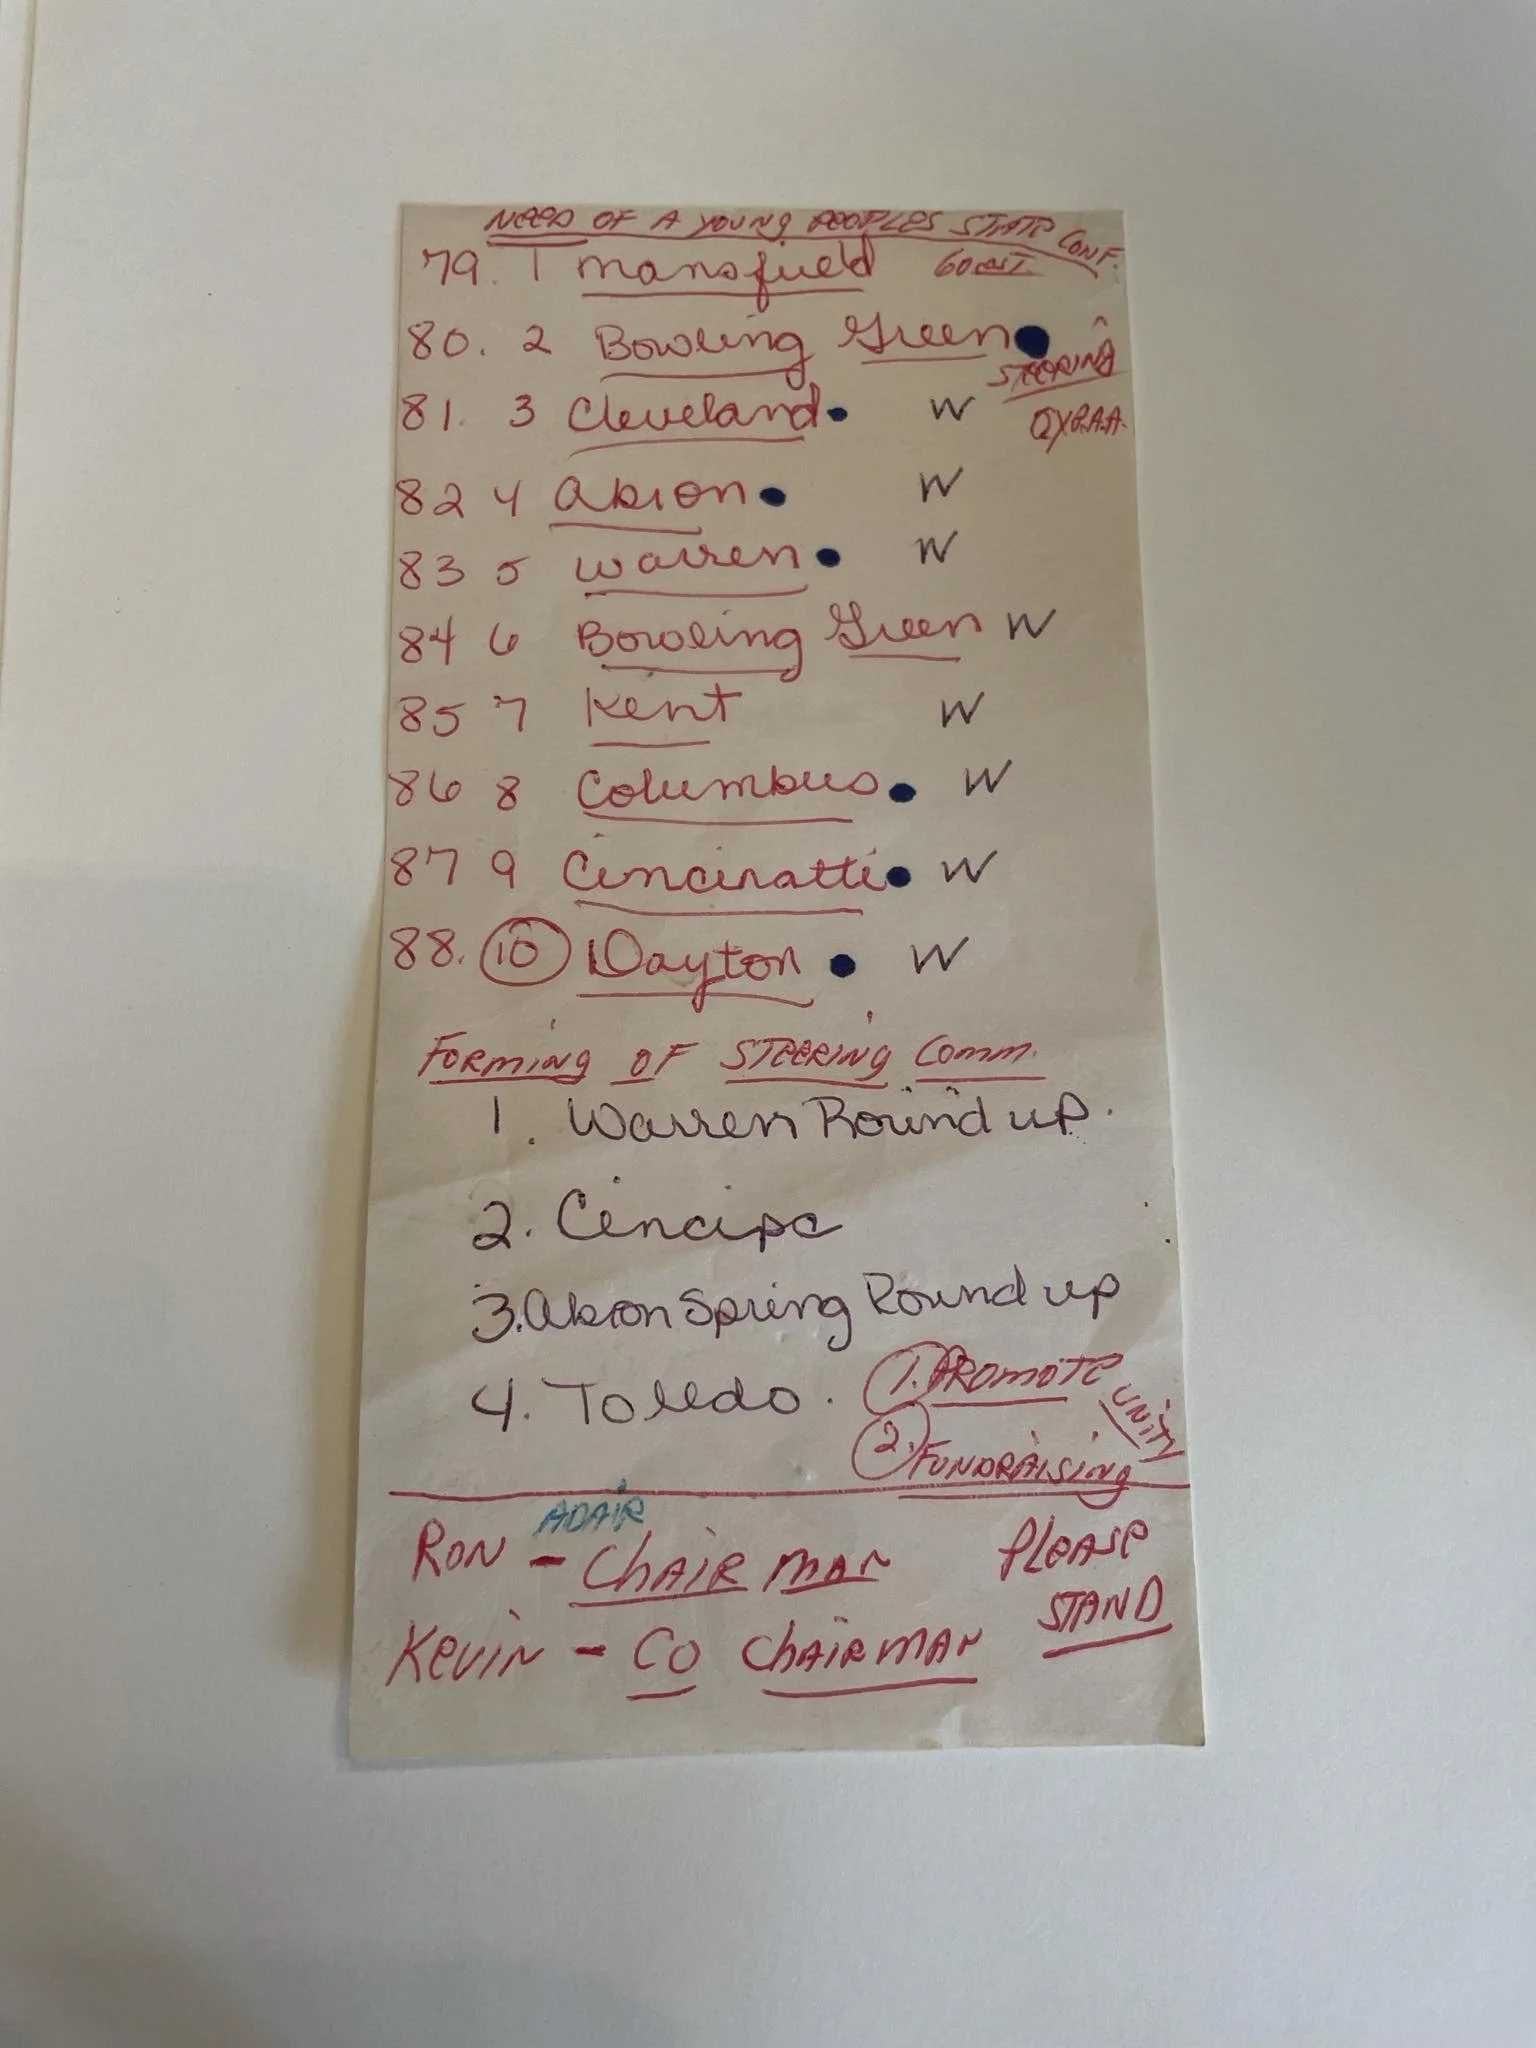 NEED OF A YOUNG PEOPLES STATE CONF.
79. 1 Mansfield
80. 2 Bowling Green
STEERING
81. 3 Cleveland W
82 4 Akron W
83 5 Warren W
84 6 Bowling Green W
85 7 Kent W
86 8 Columbus W
87 9 Cincinatti W
88. 10 Dayton W
FORMING OF STEERING COMM.
1. Warren Round up.
2. Cincipa
3. Akron Spring Round up
4. Toledo.
1. PROMOTE UNITY
2. FUNDRAISING
RON ADAIR - CHAIRMAN
KEVIN - CO CHAIRMAN
PLEASE
STAND